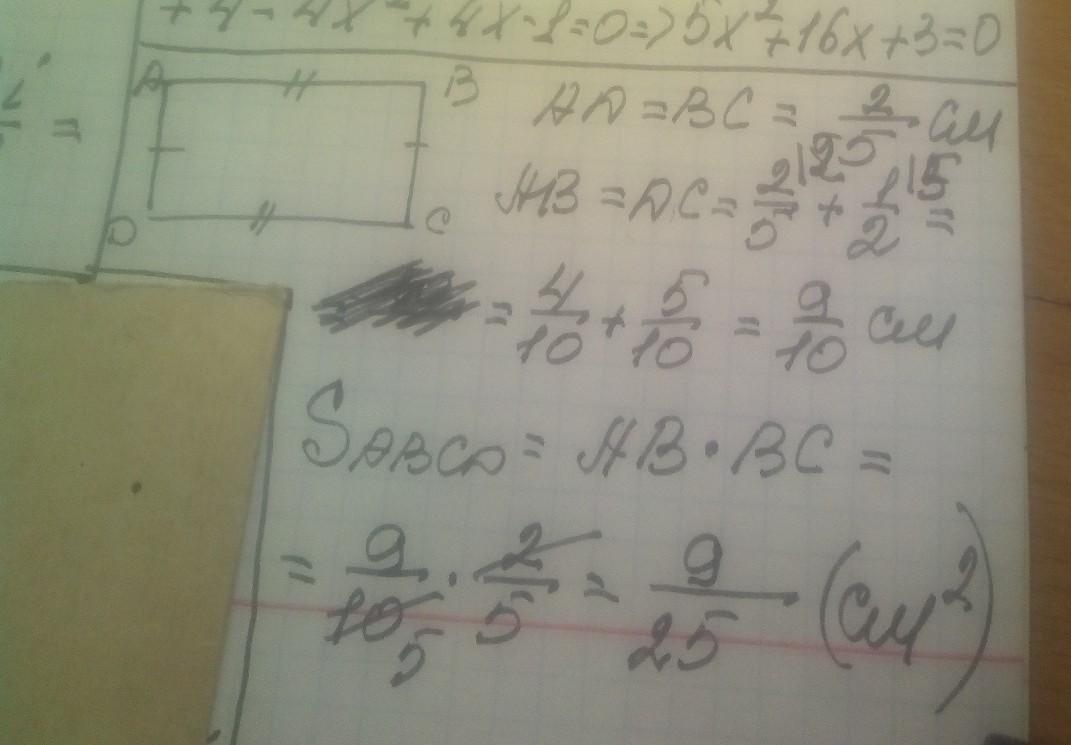 +4-4x²+4x-1=0=>5x²+16x+3=0
A B
D C
AD=BC= 2/5 см
AB=DC= 2/5 |2 + 1/2 |5 =
= 4/10 + 5/10 = 9/10 см
S ABCD = AB·BC =
= 9/10 5 · 2/5 = 9/25 (см²)